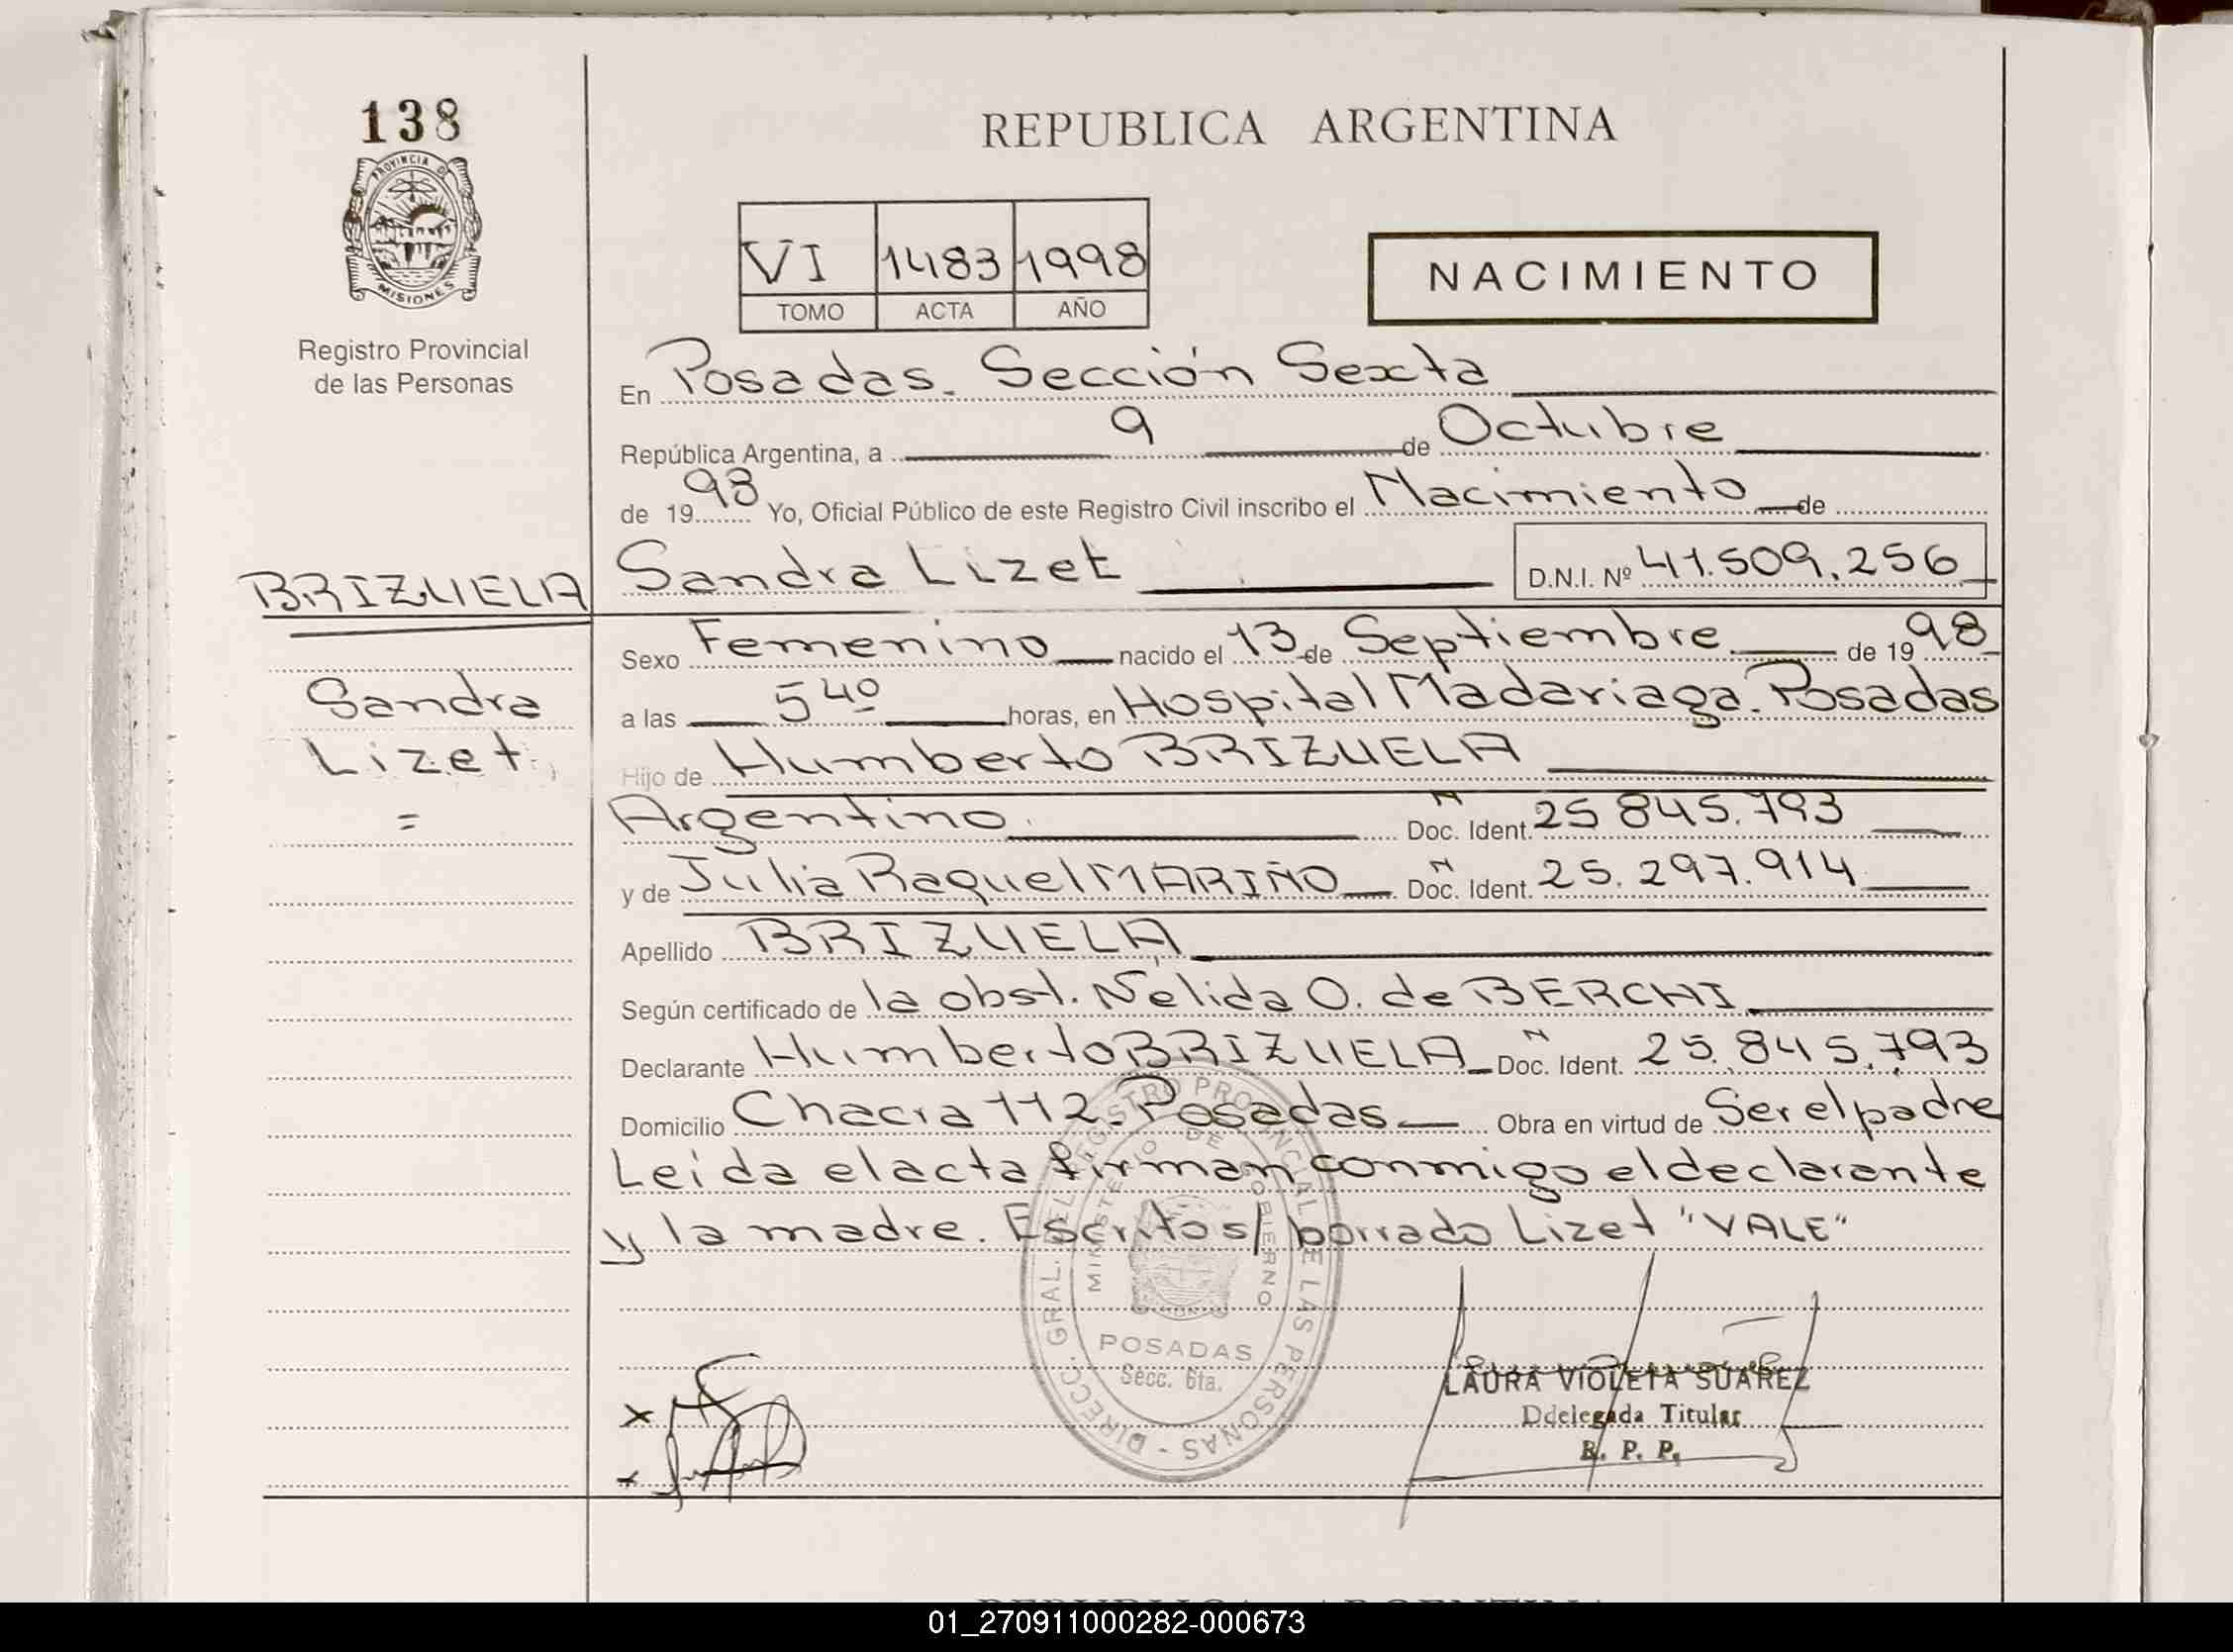 138
PROVINCIA DE
MISIONES
Registro Provincial
de las Personas
REPUBLICA ARGENTINA
VI 1483 1998
TOMO ACTA AÑO
NACIMIENTO
En Posadas. Sección Sexta
República Argentina, a 9 de Octubre
de 1998 Yo, Oficial Público de este Registro Civil inscribo el Nacimiento de
BRIZUELA
Sandra Lizet
D.N.I. Nº 41.509.256
Sexo Femenino nacido el 13 de Septiembre de 1998
Sandra
Lizet
=
a las 5 40 horas, en Hospital Madariaga. Posadas
Hijo de Humberto BRIZUELA
Argentino. Doc. Ident. N 25 845.793
y de Julia Raquel MARIÑO Doc. Ident. N 25.297.914
Apellido BRIZUELA
Según certificado de la obst. Nélida O. de BERCHI
Declarante Humberto BRIZUELA Doc. Ident. N 25.845.793
Domicilio Chacra 112. Posadas Obra en virtud de Ser el padre
Leida el acta firman conmigo el declarante
y la madre. Escrito s/ borrado Lizet "VALE"
DIRECC. GRAL. DEL REGISTRO PROVINCIAL DE LAS PERSONAS -
MINISTERIO DE GOBIERNO
POSADAS
Secc. 6ta.
LAURA VIOLETA SUAREZ
Ddelegada Titular
R. P. P.
01_270911000282-000673